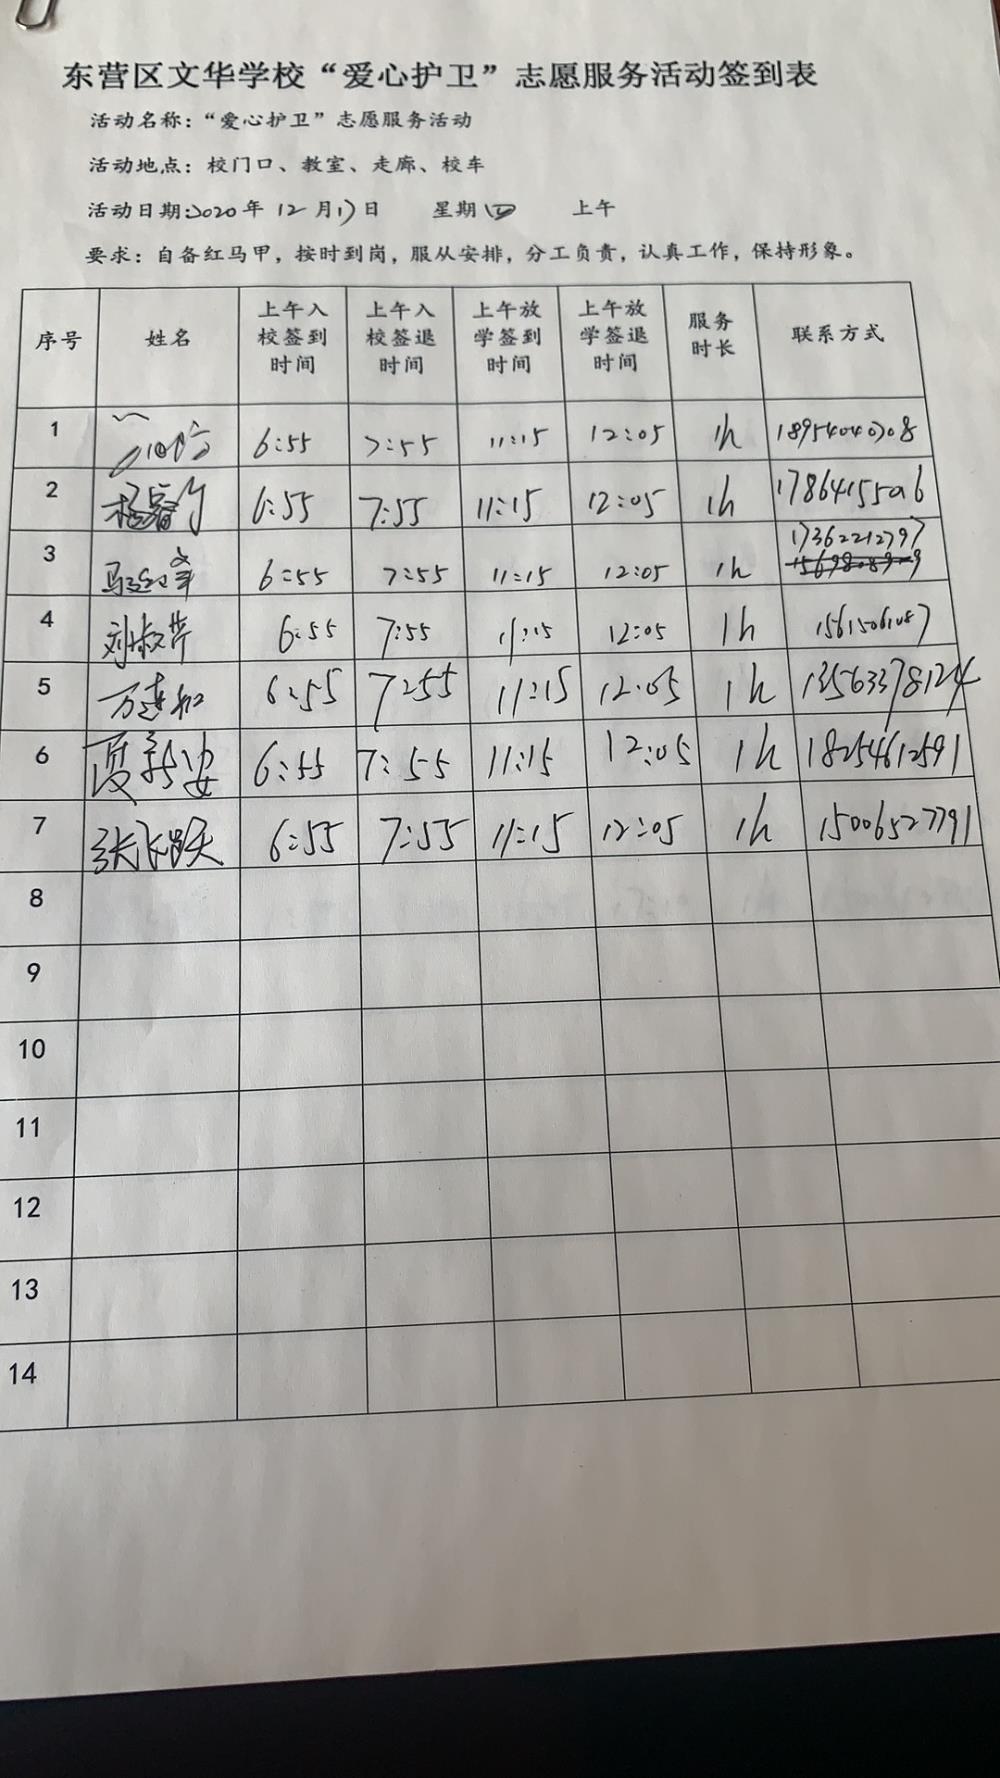 东营区文华学校“爱心护卫”志愿服务活动签到表
活动名称：“爱心护卫”志愿服务活动
活动地点：校门口、教室、走廊、校车
活动日期:2020年 12月17日 星期四 上午
要求：自备红马甲，按时到岗，服从安排，分工负责，认真工作，保持形象。
序号 姓名 上午入校签到时间 上午入校签退时间 上午放学签到时间 上午放学签退时间 服务时长 联系方式
1 6:55 7:55 11:15 12:05 1h 18954040708
2 6:55 7:55 11:15 12:05 1h
3 6:55 7:55 11:15 12:05 1h 17362212797
4 刘淑芹 6:55 7:55 11:15 12:05 1h
5 万连和 6:55 7:55 11:15 12:05 1h 13563378124
6 夏新安 6:55 7:55 11:15 12:05 1h 18254612591
7 张飞跃 6:55 7:55 11:15 12:05 1h 15006527791
8
9
10
11
12
13
14